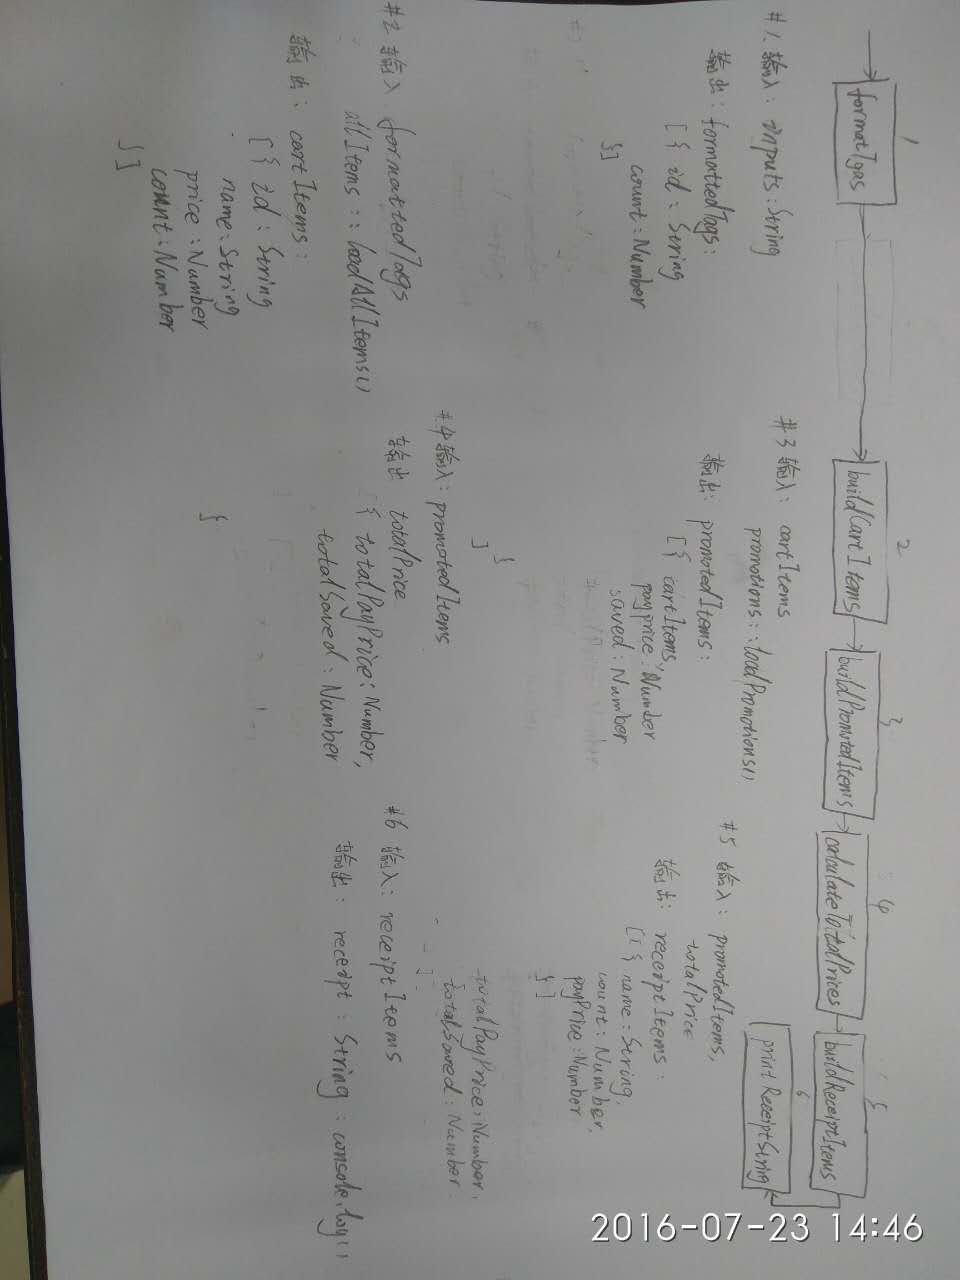 1
formatTgas
2
buildCartItems
3
buildPromotedItems
4
calculateTotalPrices
5
buildReceiptItems
6
printReceiptString
#1 输入：inputs:String
输出：formattedTags:
[{ id:String
count:Number
}]
#2 输入 formattedTags
allItems::loadAllItems()
输出：cartItems:
[{ id:String
name:String
price:Number
count:Number
}]
#3 输入：cartItems
promotions::loadPromotions()
输出：promotedItems:
[{ cartItems,
payprice:Number
saved:Number
}
]
#4 输入：promotedItems
输出 totalPrice
{ totalPayPrice:Number,
totalSaved:Number
}
#5 输入：promotedItems,
totalPrice
输出：receiptItems:
[{ name:String,
count:Number,
payPrice:Number
}]
totalPayPrice:Number,
totalSaved:Number
]
#6 输入：receiptItems
输出：receipt:String:console.log()
2016-07-23 14:46